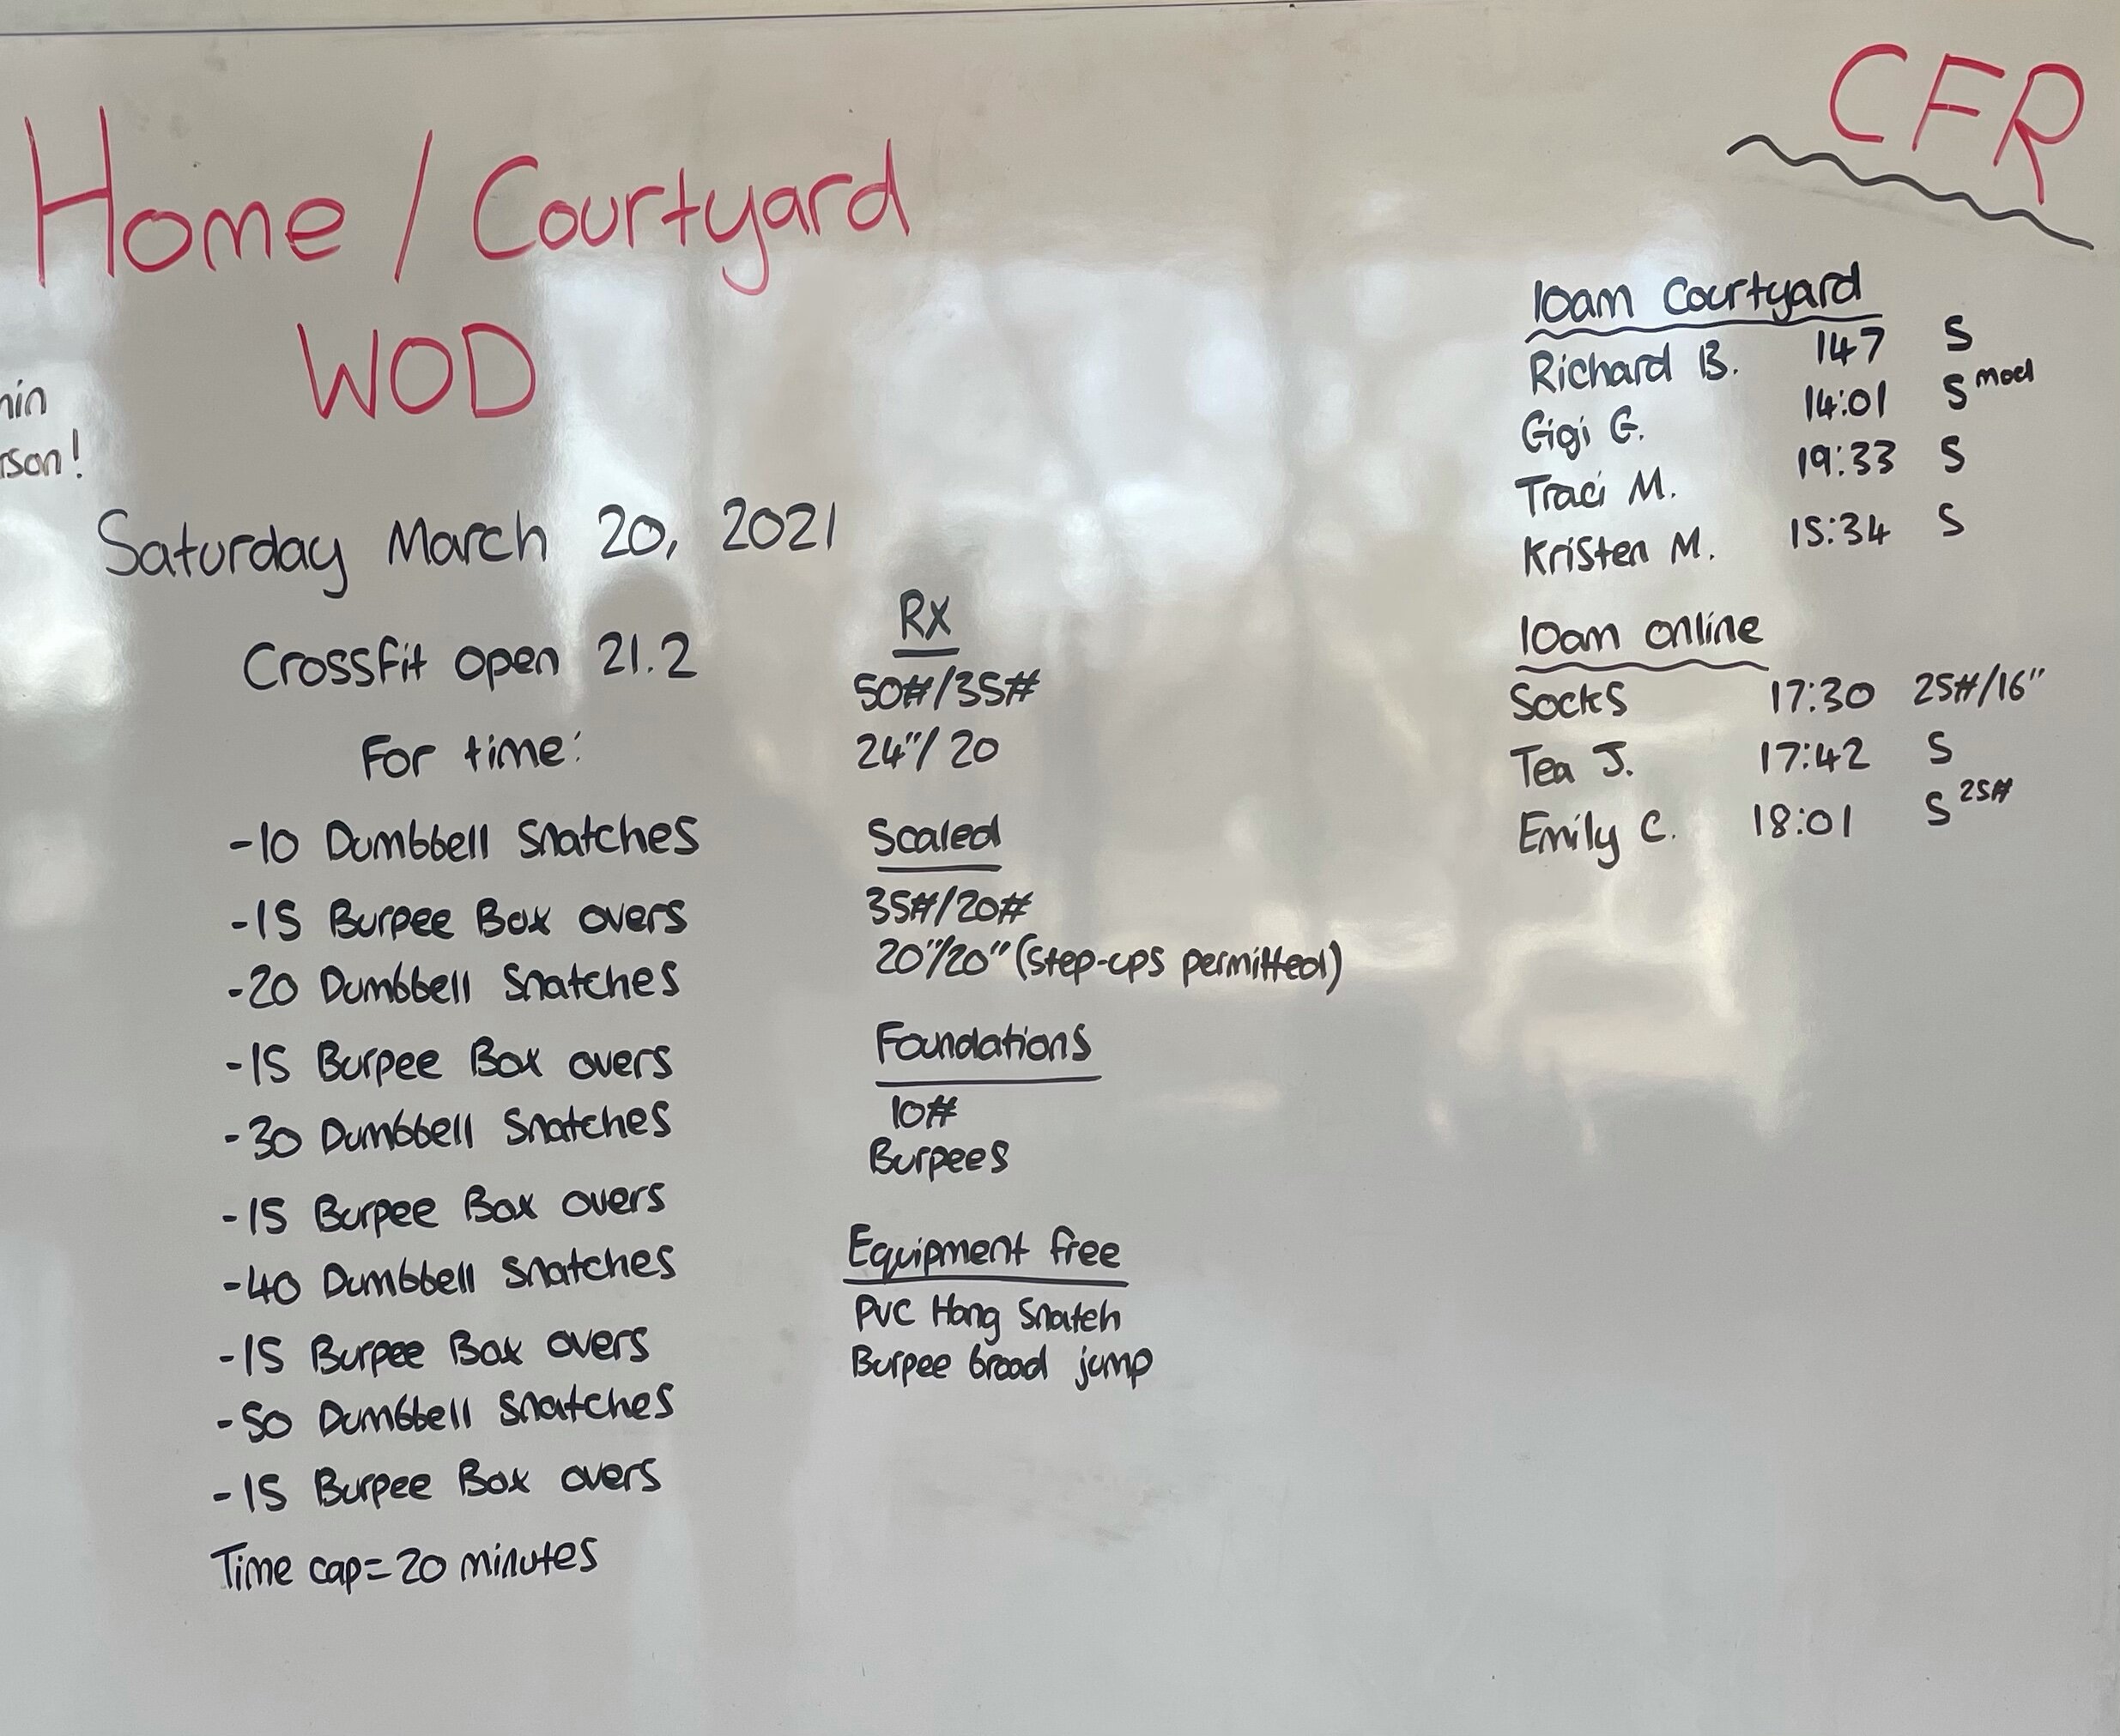 Home / Courtyard
WOD
Saturday March 20, 2021
Crossfit open 21.2
For time:
-10 Dumbbell Snatches
-15 Burpee Box overs
-20 Dumbbell Snatches
-15 Burpee Box overs
-30 Dumbbell Snatches
-15 Burpee Box overs
-40 Dumbbell Snatches
-15 Burpee Box overs
-50 Dumbbell Snatches
-15 Burpee Box overs
Time cap=20 minutes
RX
50#/35#
24"/20
Scaled
35#/20#
20"/20" (step-ups permitted)
Foundations
10#
Burpees
Equipment free
PVC Hang Snatch
Burpee broad jump
CFR
10am Courtyard
Richard B. 147 S
Gigi G. 14:01 S mod
Traci M. 19:33 S
Kristen M. 15:34 S
10am online
Socks 17:30 25#/16"
Tea J. 17:42 S
Emily C. 18:01 S 25#